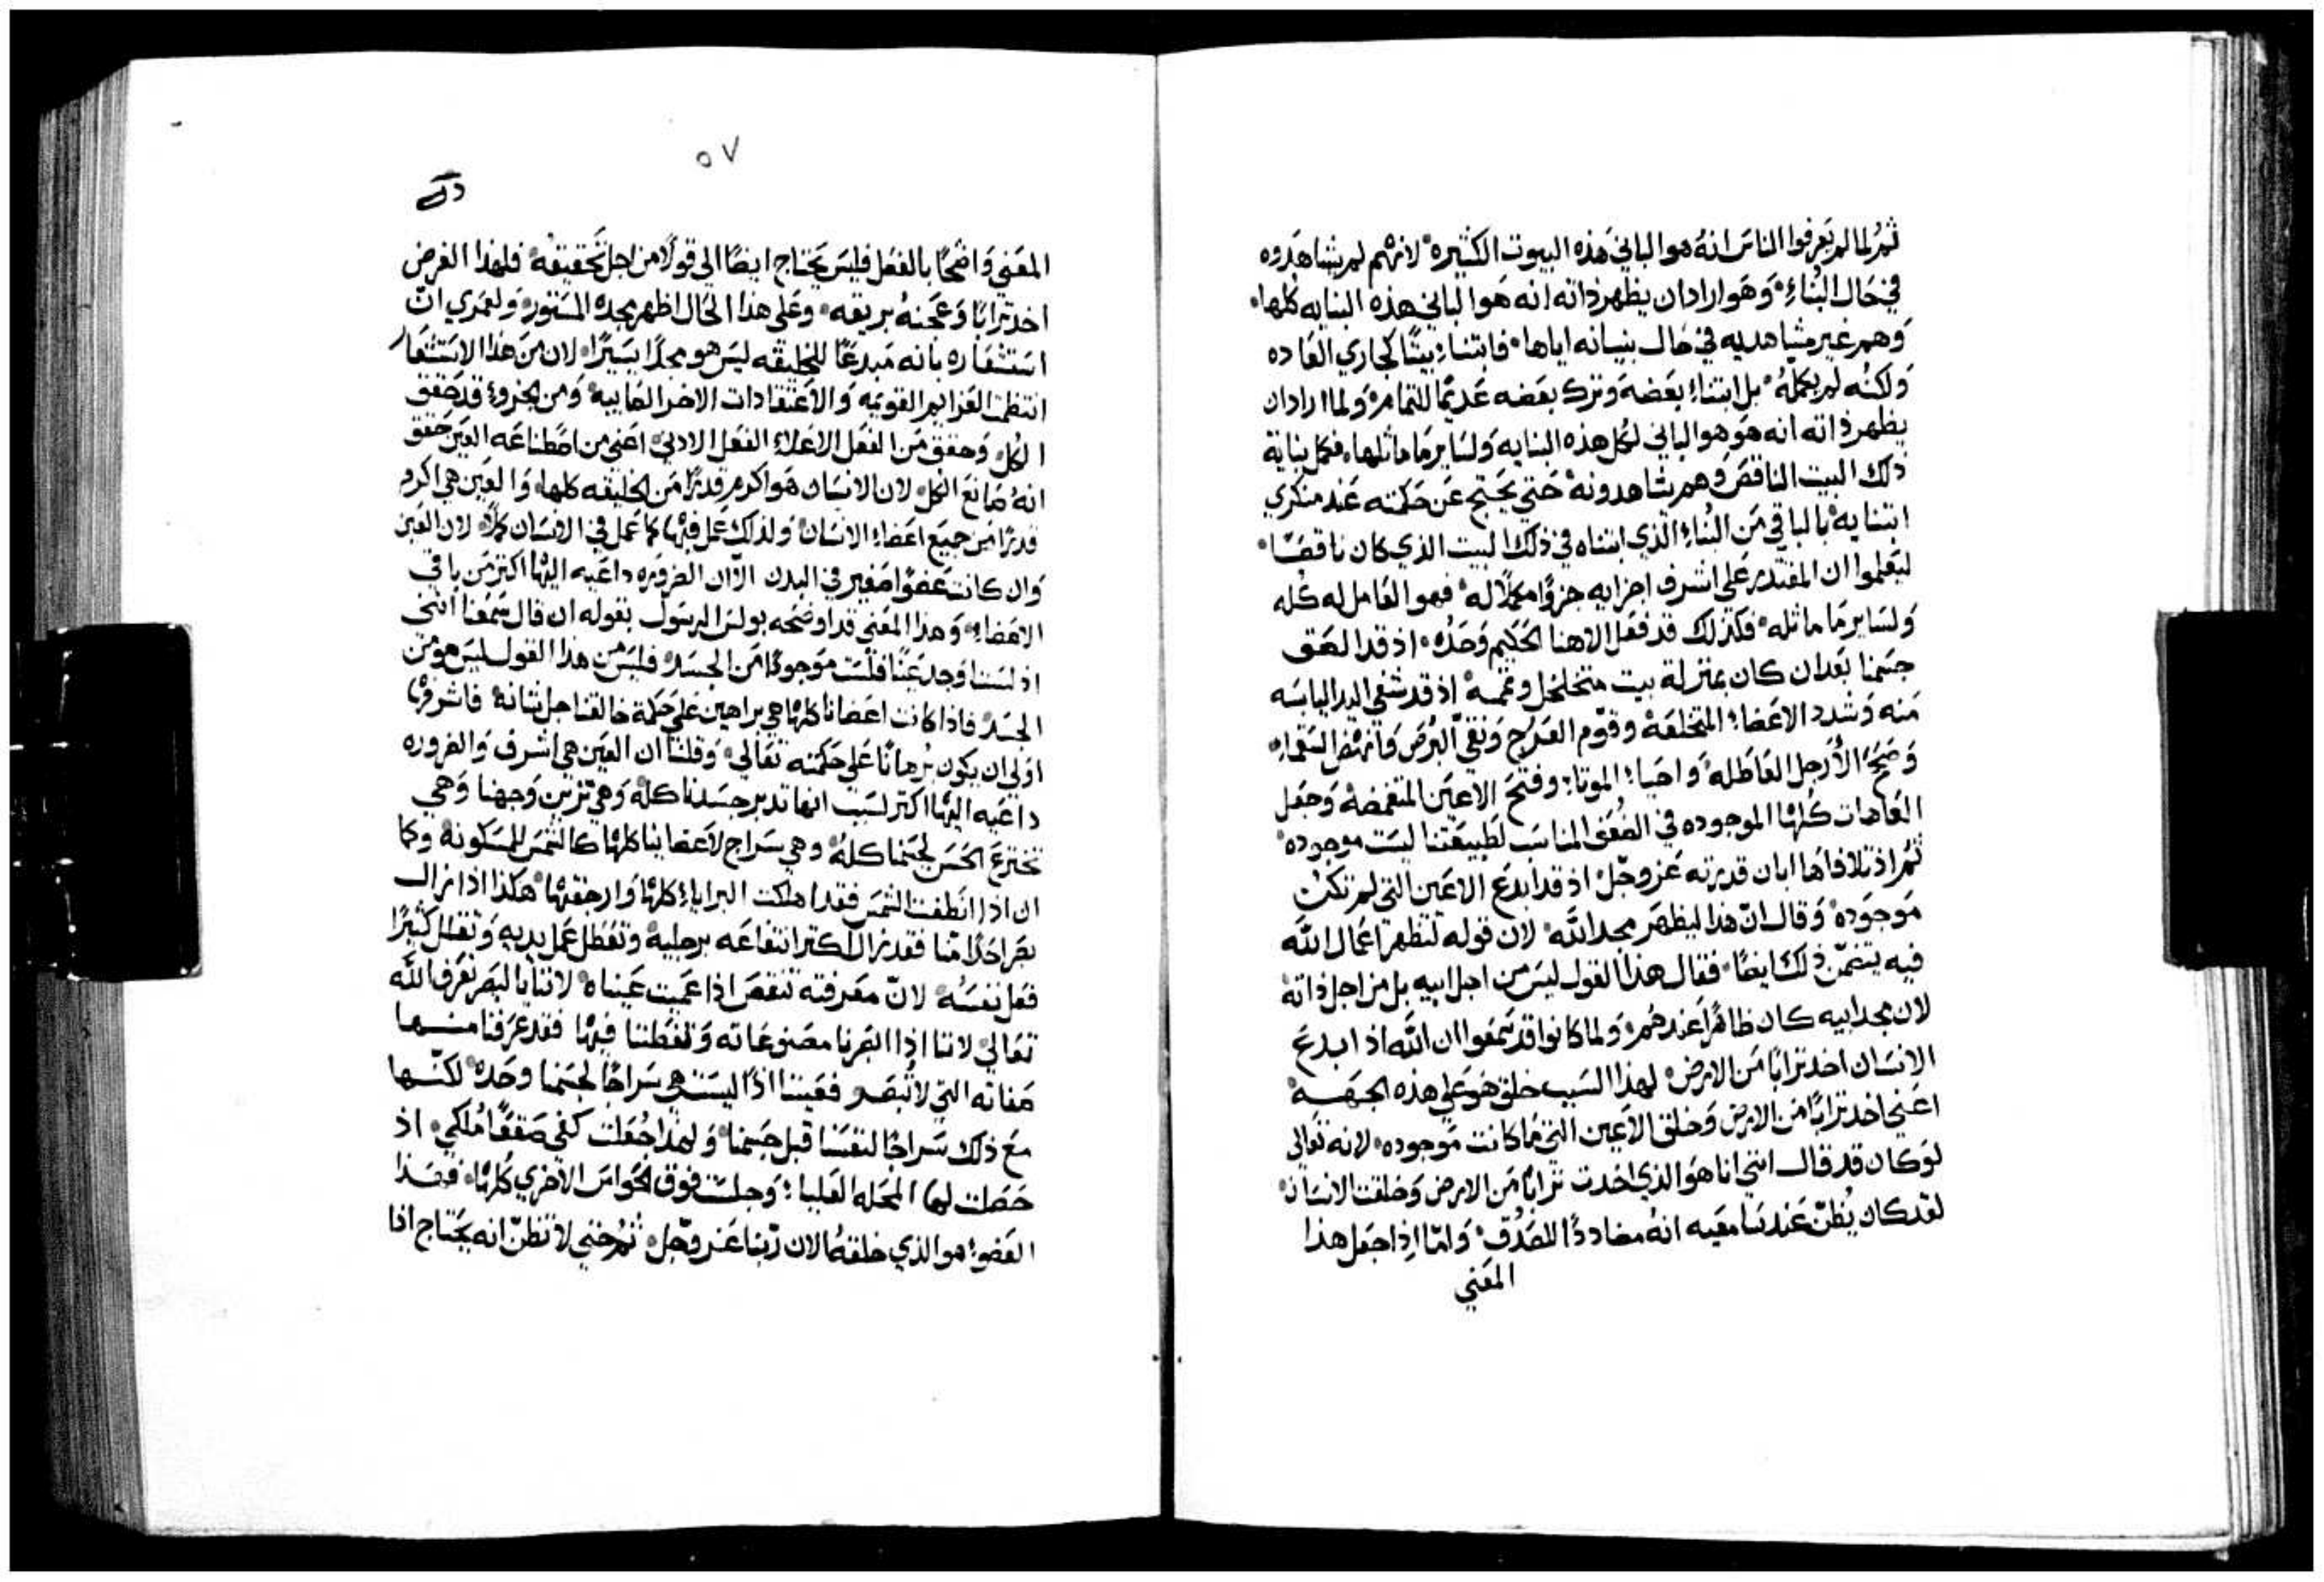 ثم لما لم يعرفوا الناس انه هو الباني هذه البيوت الكثيره لانهم لم يشاهدوه
في حال البُناءِ وهو اراد ان يظهر ذاته انه هو الباني هذه البنايه كلها
وهم غير مشاهديه في حال بنيانه اياها فابتناء بيتًا كجاري العاده
ولكنه لم يكملهُ بل ابتناء بعضه وترك بعضه عديمًا للتمام ولما اراد ان
يظهر ذاته انه هو هو الباني لكل هذه البنايه ولساير ما ماثلها فكمل بناية
ذلك البيت الناقص وهم يشاهدونه حتي يحتج عن حكمته عند منكري
ابتنايه بالباقي من البُناءِ الذي ابتناه في ذلك البيت الذي كان ناقصًا
ليعلموا ان المقتدر علي اشرف اجزايه جزوًا مكملًا له فهو العامل له كله
ولساير ما ماثله فكذلك قد فعل الاهنا الحكيم وحدُه اذ قد الصق
جسمنا بعد ان كان بمنزلة بيت متخلخل وتممه اذ قد شفي اليد اليابسه
منه وشدد الاعضاء المتخلعة وقوّم العرج ونقّي البُرص وانهض السقماء
وصحح الأرجل العاطله واحيا الموتا وفتح الاعين المتغمضة وجعل
العاهات كلها الموجوده في الضعف المناسب لطبيعتنا ليست موجوده
ثم اذ تلافاها ابان قدرته عز وجلّ اذ قد ابدع الاعين التي لم تكن
موجوده وقال انّ هذا ليظهر مجد الله لان قوله لتظهر اعمال الله
فيه يتضمّن ذلك ايضًا فقال هذا القول ليس من اجل ابيه بل من اجل ذاته
لان مجد ابيه كان ظاهرًا عندهم ولما كانوا قد سمعوا ان الله اذ ابدع
الانسان اخد ترابًا من الارض لهذا السبب خلق هو علي هذه الجهه
اعني اخد ترابًا من الارض وخلق الاعين التي ما كانت موجوده لانه تعالي
لو كان قد قال انني انا هو الذي اخدت ترابًا من الارض وخلقت الانسان
لقد كان يُظنّ عند سامعيه انه مضاددًا للصدق وامّا اذا جعل هذا
المعني
٥٧
المعني واضحًا بالفعل فليس يحتاج ايضًا الي قولًا من اجل تحقيقه فلهذا الغرض
اخد ترابًا وعجنهُ بريقه وعلي هذا الحال اظهر مجده المستور ولعمري انّ
استشعاره بانه مبدعًا للخليقه ليس هو مجدًا يسيرًا لان من هذا الاستشعار
انتظمت العزايم القويمه والاعتقادات الاخر الصايبه ومن الجزؤ قد حقق
الكل وحقق من الفعل الاعلاء الفعل الادني اعني من اصطناعه العين حقق
انهُ صانع الكل لان الانسان هو اكرم قدرًا من الخليقه كلها والعين هي اكرم
قدرًا من جميع اعضاء الانسان ولذلك عمل فيها كما عمل في الانسان كله لان العين
وان كانت عضوًا صغير في البدن الّا ان الضروره داعيه اليها اكثر من باقي
الاعضاء وهذا المعني قد اوضحه بولس الرسول بقوله ان قال سمعنا انني
اذ لست اوجد عينًا فلست موجودًا من الجسد فليس من هذا القول ليس هو من
الجسد فاذا كانت اعضانا كلها هي براهين علي حكمة خالقنا جل ثنانه فاشرفها
اولي ان يكون بُرهانًا علي حكمته تعالي وقلنا ان العين هي اشرف والضروره
داعيه اليها اكثر لسبب انها تدبر جسدنا كله وهي تزين وجهنا وهي
تخترع الحسن لجسمنا كله وهي سراج لاعضاينا كلها كالشمس للمسكونة وكما
ان اذا انطفت الشمس فقد اهلكت البرايا كلها وارجفتها هكذا اذا زال
بصر احدًا منّا فقد زال اكثر انتفاعه برجليه وتعطل عمل يديه وتعطل كثيرًا
فعل نفسُه لانّ معرفته تنقص اذا عميت عيناه لاننا بالبصر نعرف الله
تعالي لاننا اذا ابصرنا مصنوعاته وتفطننا فيها فقد عرفنا منها
صفاته التي لا تُبصر فعيننا اذًا ليست هي سراجًا لجسمنا وحده لكنّها
مع ذلك سراجًا لنفسنا قبل جسمنا ولهذا جُعلت كفي صقعًا مُلكي اذ
حصلت لها المحله العليا وجلست فوق الحواس الاخري كلها فهذا
العضو هو الذي خلقهُ الان ربّنا عز وجل ثم حتي لا تظنّ انه يحتاج اذا